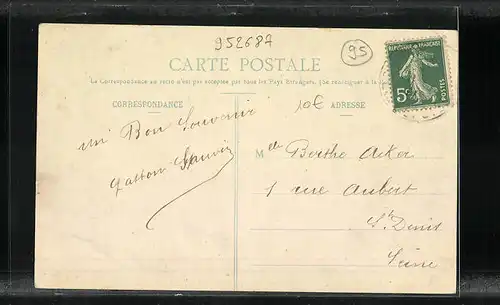 952687
95
CARTE POSTALE
La Correspondance au recto n'est pas acceptée par tous les Pays Étrangers. (Se renseigner à la
REPUBLIQUE FRANÇAISE
5c
POSTES
CORRESPONDANCE
10€
ADRESSE
un Bon Souvenir
Gaston
Melle Berthe Acker
1 rue Aubert
St Denis
Seine